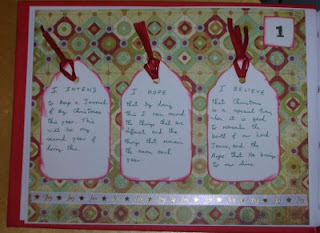 1
I INTEND
to keep a Journal
of my Christmas
this year. This
will be my
second year of
doing this.
I HOPE
that by doing
this I can record
the things that are
different and the
things that remain
the same each
year.
I BELIEVE
that Christmas
is a special time
when it is good
to remember the
birth of our Lord
Jesus, and the
Hope that He brings
to our lives.
Joy Joy Joy